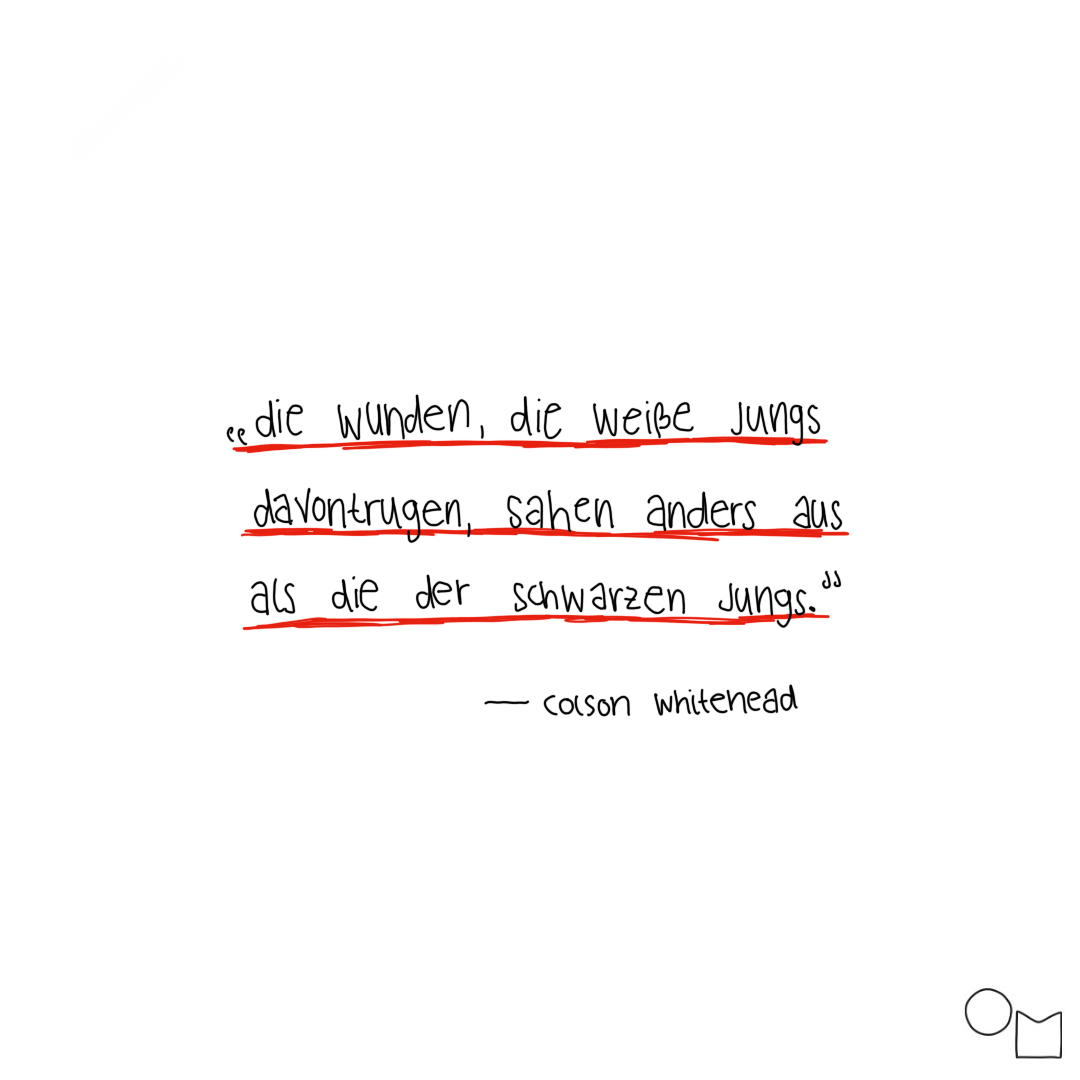 „die wunden, die weiße jungs
davontrugen, sahen anders aus
als die der schwarzen jungs.“
— colson whitehead